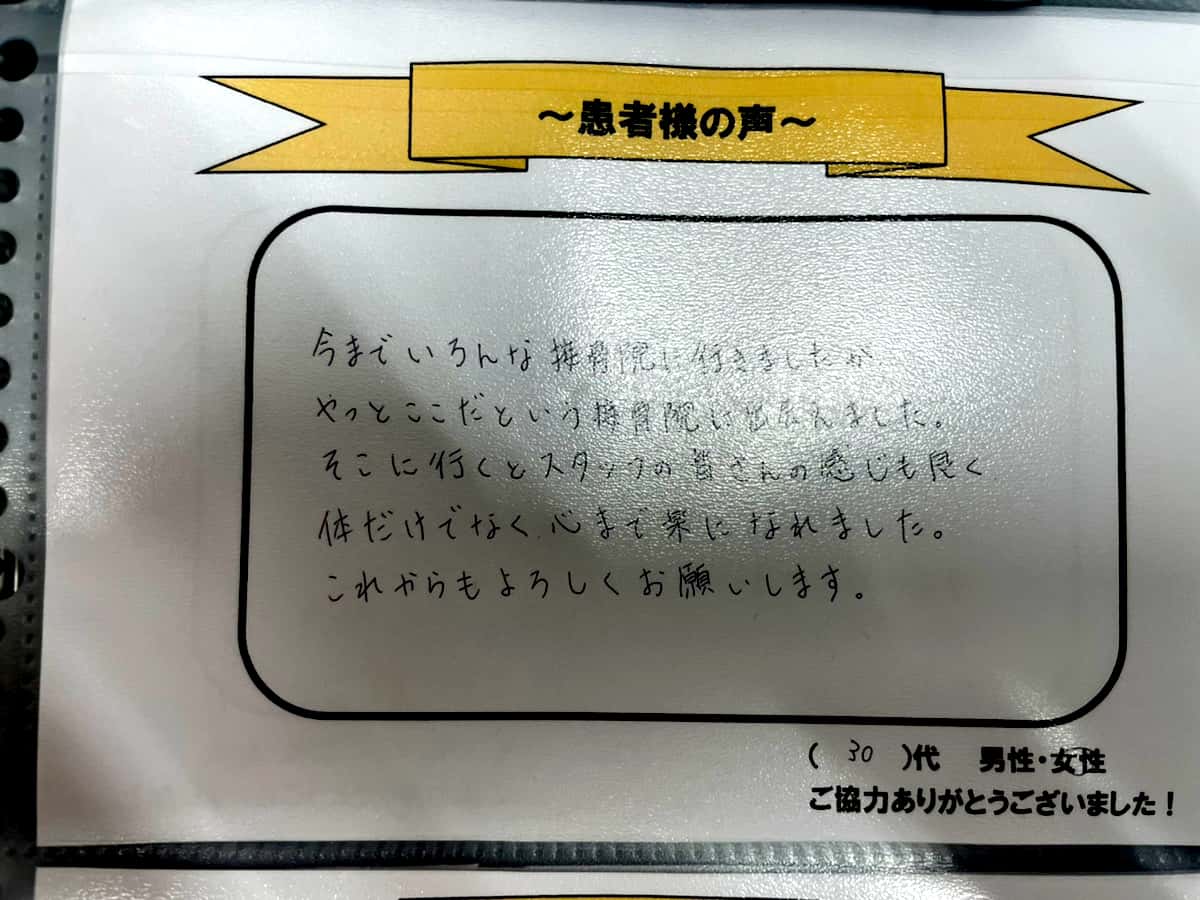 ～患者様の声～
今までいろんな接骨院に行きましたが
やっとここだという接骨院に出会えました。
そこに行くとスタッフの皆さんの感じも良く
体だけでなく、心まで楽になれました。
これからもよろしくお願いします。
( 30 )代 男性・女性
ご協力ありがとうございました！